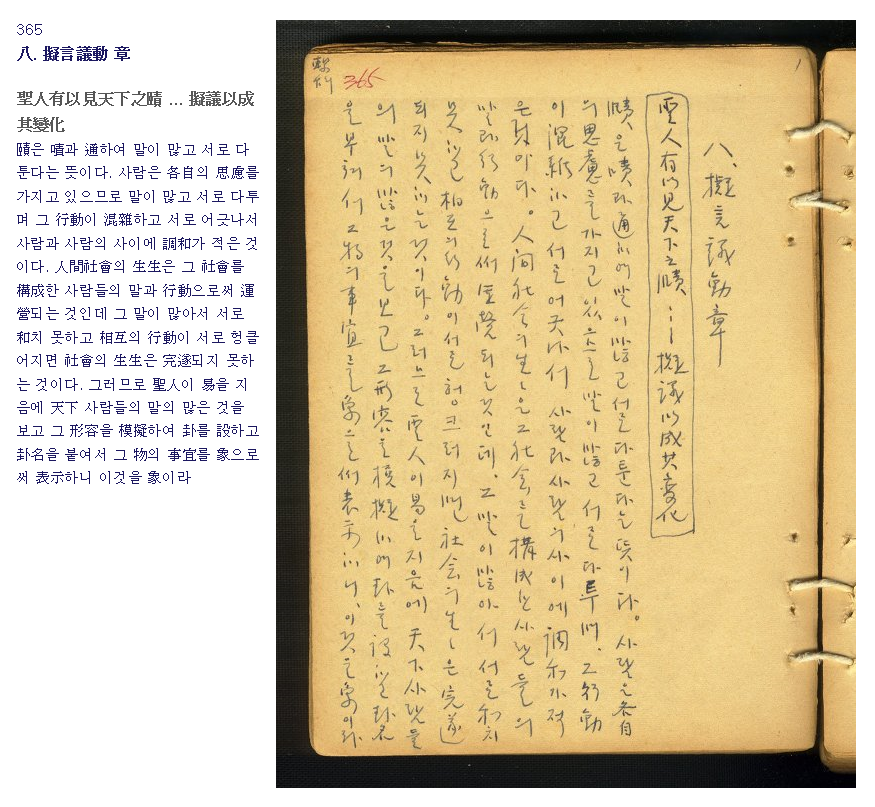 365
八. 擬言議動 章
聖人有以見天下之賾 … 擬議以成
其變化
賾은 嘖과 通하여 말이 많고 서로 다
툰다는 뜻이다. 사람은 各自의 思慮를
가지고 있으므로 말이 많고 서로 다투
며 그 行動이 混雜하고 서로 어긋나서
사람과 사람의 사이에 調和가 적은 것
이다. 人間社會의 生生은 그 社會를
構成한 사람들의 말과 行動으로써 運
營되는 것인데 그 말이 많아서 서로
和치 못하고 相互의 行動이 서로 헝클
어지면 社會의 生生은 完遂되지 못하
는 것이다. 그러므로 聖人이 易을 지
음에 天下 사람들의 말의 많은 것을
보고 그 形容을 模擬하여 卦를 設하고
卦名을 붙여서 그 物의 事宜를 象으로
써 表示하니 이것을 象이라
365
八、擬言議動章
聖人有以見天下之賾…擬議以成其変化
賾은 嘖과 通하여 말이 많고 서로 다툰다는 뜻이다。사람은 各自
의 思慮를 가지고 있으므로 말이 많고 서로 다투며、그 行動
이 混雜하고 서로 어긋나서 사람과 사람의 사이에 調和가 적
은 것이다。人間社会의 生〻은 그 社会를 構成한 사람들의
말과 行動으로써 運營되는 것인데、그 말이 많아서 서로 和치
못하고 相互의 行動이 서로 헝크러지면 社会의 生〻은 完遂
되지 못하는 것이다。그러므로 聖人이 易을 지음에 天下 사람들
의 말의 많은 것을 보고 그 形容을 模擬하여 卦를 設하고 卦名
을 붙여서 그 物의 事宜를 象으로써 表示하니、이것을 象이라